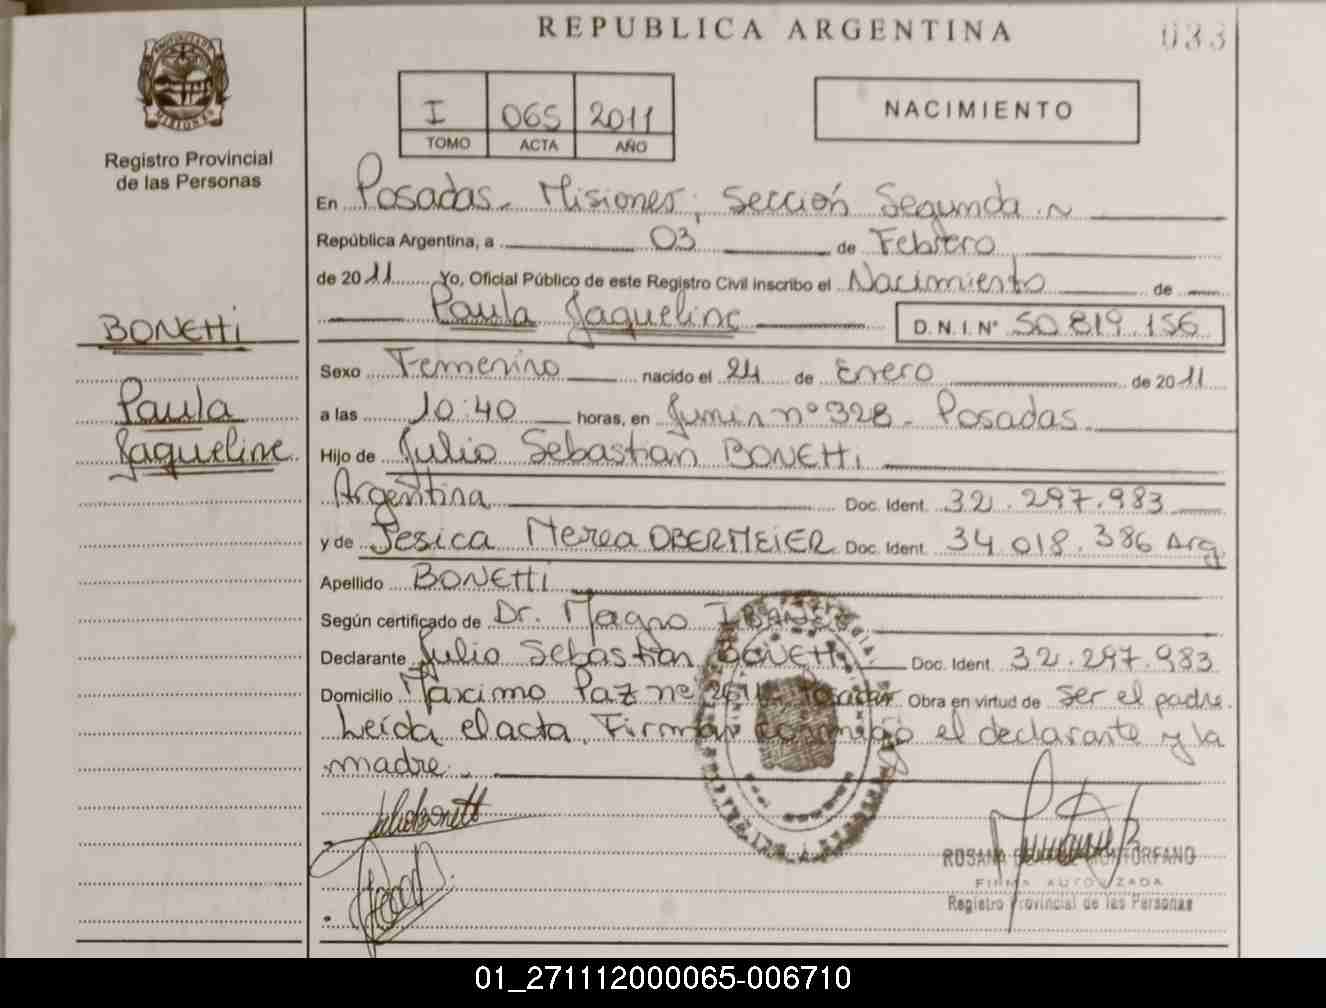 REPUBLICA ARGENTINA
033
PROVINCIA DE MISIONES
Registro Provincial
de las Personas
I 065 2011
TOMO ACTA AÑO
NACIMIENTO
En Posadas - Misiones, Sección Segunda
República Argentina, a 03 de Febrero
de 2011 Yo, Oficial Público de este Registro Civil inscribo el Nacimiento de
Paula Jaqueline D.N.I.Nº 50.819.156
BONEtti
Paula
Jaqueline
Sexo Femenino nacido el 24 de Enero de 2011
a las 10:40 horas, en Junin nº 328 - Posadas
Hijo de Julio Sebastian BONEtti
Argentina Doc. Ident. 32.297.983
y de Jesica Nerea OBERMEIER Doc. Ident. 34.018.386 Arg
Apellido BONEtti
Según certificado de Dr. Magno IBAÑEZ
Declarante Julio Sebastian BONEtti Doc. Ident. 32.297.983
Domicilio Maximo Paz nº Obra en virtud de ser el padre.
Leída el acta, Firman conmigo el declarante y la
madre.
ROSANA MONTORFANO
FIRMA AUTORIZADA
Registro Provincial de las Personas
01_271112000065-006710